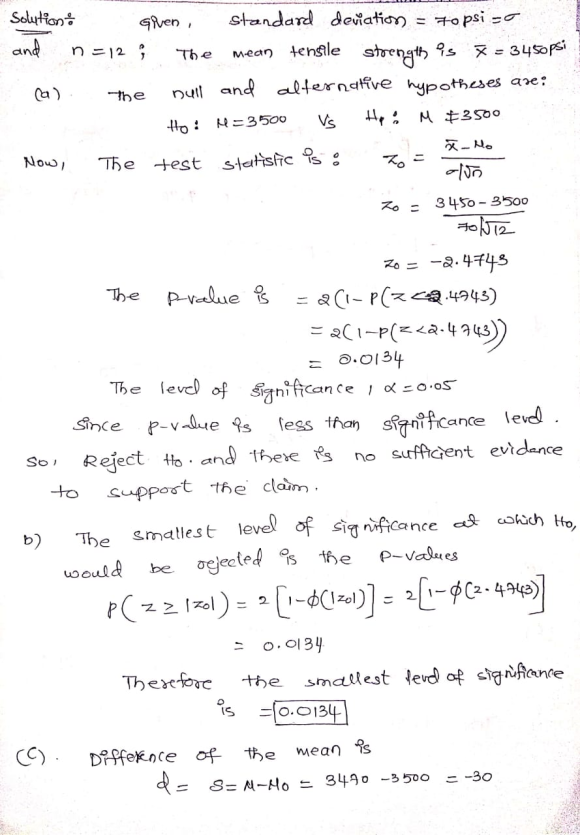 Solution: Given, standard deviation = 70 psi = σ
and n = 12 ; The mean tensile strength is x̄ = 3450 psi
(a) The null and alternative hypotheses are:
H₀ : M = 3500 Vs H₁ : M ≠ 3500
Now, The test statistic is : Z₀ = (x̄ - M₀)/(σ/√n)
Z₀ = (3450 - 3500)/(70/√12)
Z₀ = -2.4743
The p-value is = 2(1-P(Z < 2.4943)
= 2(1-P(Z < 2.4943))
= 0.0134
The level of significance, α = 0.05
Since p-value is less than significance level.
So, Reject H₀. and there is no sufficient evidence
to support the claim.
b) The smallest level of significance at which H₀,
would be rejected is the P-values
P(Z ≥ |Z₀|) = 2[1-ϕ(|Z₀|)] = 2[1-ϕ(2.4943)]
= 0.0134
Therefore the smallest level of significance
is = 0.0134
(C). Difference of the mean is
d = S = M-M₀ = 3490 - 3500 = -30